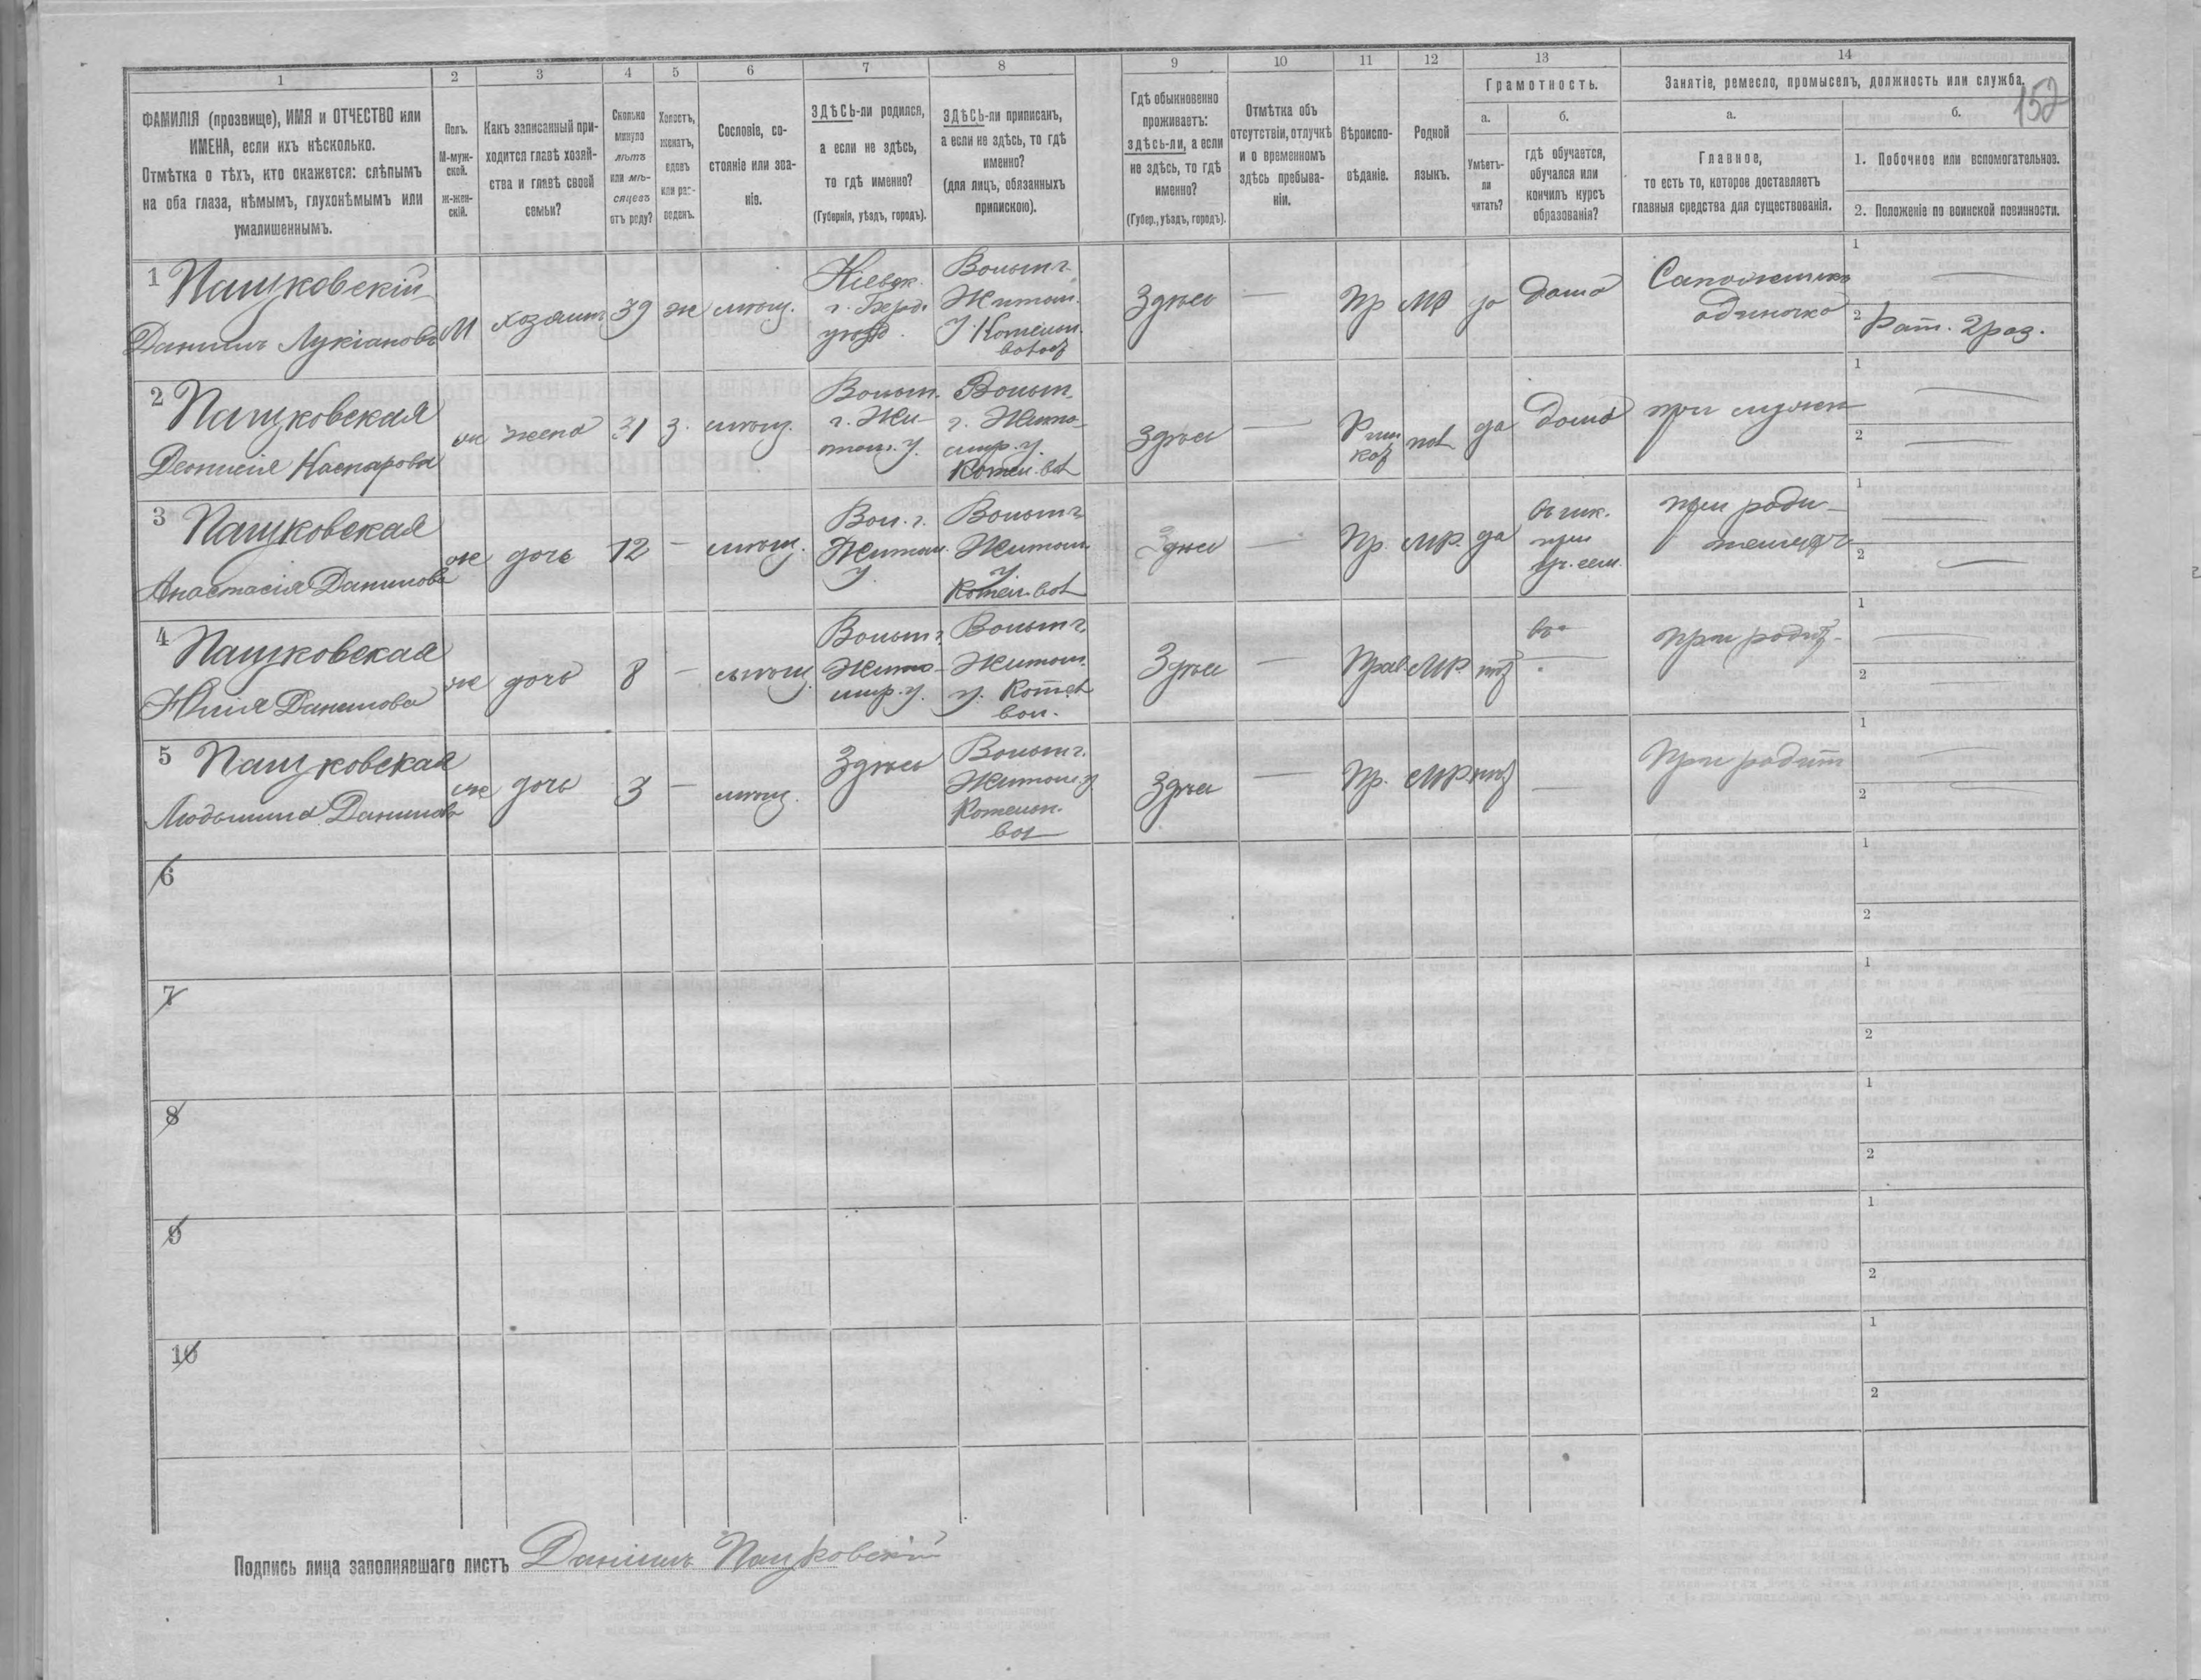 1 2 3 4 5 6 7 8 9 10 11 12 13 14
152
ФАМИЛІЯ (прозвище), ИМЯ и ОТЧЕСТВО или
ИМЕНА, если ихъ нѣсколько.
Отмѣтка о тѣхъ, кто окажется: слѣпымъ
на оба глаза, нѣмымъ, глухонѣмымъ или
умалишеннымъ.
Полъ.
М-муж-
ской.
Ж-жен-
скій.
Какъ записанный при-
ходится главѣ хозяй-
ства и главѣ своей
семьи?
Сколько
минуло
лѣтъ
или мѣ-
сяцевъ
отъ роду?
Холостъ,
женатъ,
вдовъ
или раз-
веденъ.
Сословіе, со-
стояніе или зва-
ніе.
ЗДѢСЬ-ли родился,
а если не здѣсь,
то гдѣ именно?
(Губернія, уѣздъ, городъ).
ЗДѢСЬ-ли приписанъ,
а если не здѣсь, то гдѣ
именно?
(для лицъ, обязанныхъ
припискою).
Гдѣ обыкновенно
проживаетъ:
здѣсь-ли, а если
не здѣсь, то гдѣ
именно?
(Губер., уѣздъ, городъ).
Отмѣтка объ
отсутствіи, отлучкѣ
и о временномъ
здѣсь пребыва-
ніи.
Вѣроиспо-
вѣданіе.
Родной
языкъ.
Грамотность.
а.
Умѣетъ-
ли
читать?
б.
гдѣ обучается,
обучался или
кончилъ курсъ
образованія?
Занятіе, ремесло, промыселъ, должность или служба.
а.
Главное,
то есть то, которое доставляетъ
главныя средства для существованія.
б.
1. Побочное или вспомогательное.
2. Положеніе по воинской повинности.
1 Пашковскій
Даниилъ Лукіановъ
М
хозяинъ
39
ж
мѣщ.
Кіевск.
г. Берд.
уѣзд.
Волын г.
Житом.
у.
Здѣсь
—
Пр
МР
да
дома
Сапожникъ
одиночка
1 —
2 Рат. 2 раз.
2 Пашковская
Каспарова
ж
жена
31
з.
мѣщ.
Волын.
г. Жи-
том. у.
Волын.
г. Жито-
мир. у.
Котел. вол
Здѣсь
—
Рим
кат
пол
да
дома
при мужѣ
1 —
2 —
3 Пашковская
Анастасія Данилова
ж
дочь
12
—
мѣщ.
Вол. г.
Житом.
у.
Волын г.
Житом.
у.
Котел. вол
Здѣсь
—
Пр.
МР.
да
въ шк.
при
при роди-
теляхъ
1 —
2 —
4 Пашковская
Юлія Данилова
ж
дочь
8
—
мѣщ.
Волын г.
Жито-
мир. у.
Волын г.
Житом.
у. Котел
вол.
Здѣсь
—
Прав.
МР.
нѣт
—
При родит.
1 —
2 —
5 Пашковская
Людмила Данилова
ж
дочь
3
—
мѣщ.
Здѣсь
Волын г.
Житом. у
вол
Здѣсь
—
Пр.
МР
нѣт
—
При родит
1 —
2 —
6
1
2
7
1
2
8
1
2
9
1
2
10
1
2
Подпись лица заполнявшаго листъ Даніилъ Пашковскій